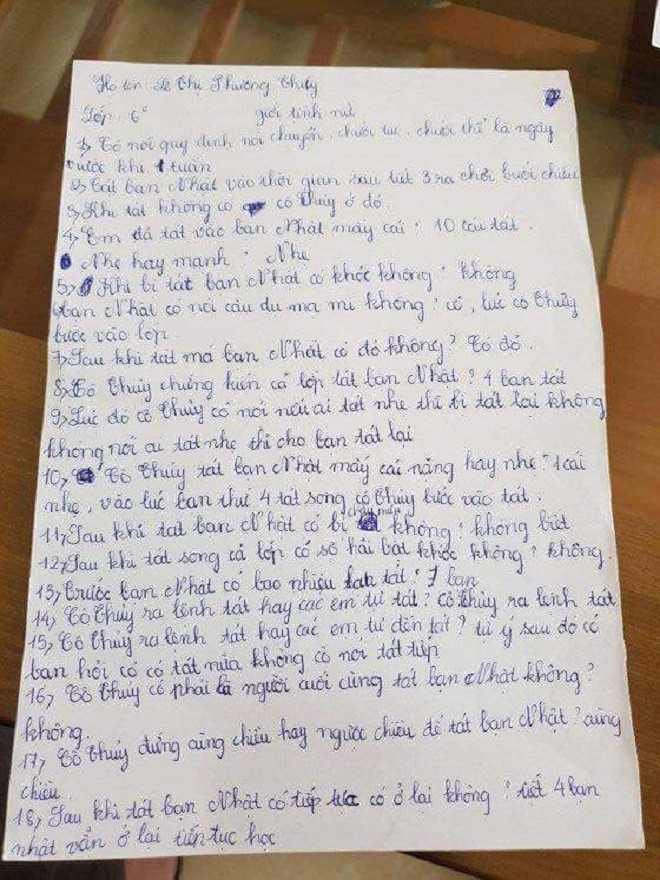 Họ tên: Lê Thị Phương Thủy
Lớp: 6² giới tính nữ
1, Cô nói quy định nói chuyện, chửi tục, chửi thề là ngày
trước khi 1 tuần
2, Tát bạn Nhật vào thời gian sau tiết 3 ra chơi buổi chiều
3, Khi tát không có cô Thủy ở đó.
4, Em đã tát vào bạn Nhật mấy cái? 10 cái tát.
Nhẹ hay mạnh? Nhẹ
5, Khi bị tát bạn Nhật có khóc không? không
6, bạn Nhật có nói câu du ma mi không? có, lúc cô Thủy
bước vào lớp.
7, Sau khi tát má bạn Nhật có đỏ không? Có đỏ.
8, Cô Thủy chứng kiến cả lớp tát bạn Nhật? 4 bạn tát
9, Lúc đó cô Thủy có nói nếu ai tát nhẹ thì bị tát lại không
không nói ai tát nhẹ thì cho bạn tát lại
10, Cô Thủy tát bạn Nhật mấy cái nặng hay nhẹ? 1 cái
nhẹ, vào lúc bạn thứ 4 tát song cô Thủy bước vào tát.
11, Sau khi tát bạn Nhật có bị chảy máu không? không biết
12, Sau khi tát song cả lớp có sợ hãi bật khóc không? không.
13, Trước bạn Nhật có bao nhiêu bạn tát? 7 bạn
14, Cô Thủy ra lệnh tát hay các em tự tát? Cô Thủy ra lệnh tát
15, Cô Thủy ra lệnh tát hay các em tự đến tát? tự ý sau đó có
bạn hỏi cô có tát nữa không cô nói tát tiếp
16, Cô Thủy có phải là người cuối cùng tát bạn Nhật không?
không.
17, Cô Thủy đứng cùng chiều hay ngược chiều để tát bạn Nhật? cùng
chiều.
18, Sau khi tát bạn Nhật có tiếp tục có ở lại không? tiết 4 bạn
nhật vẫn ở lại tiếp tục học